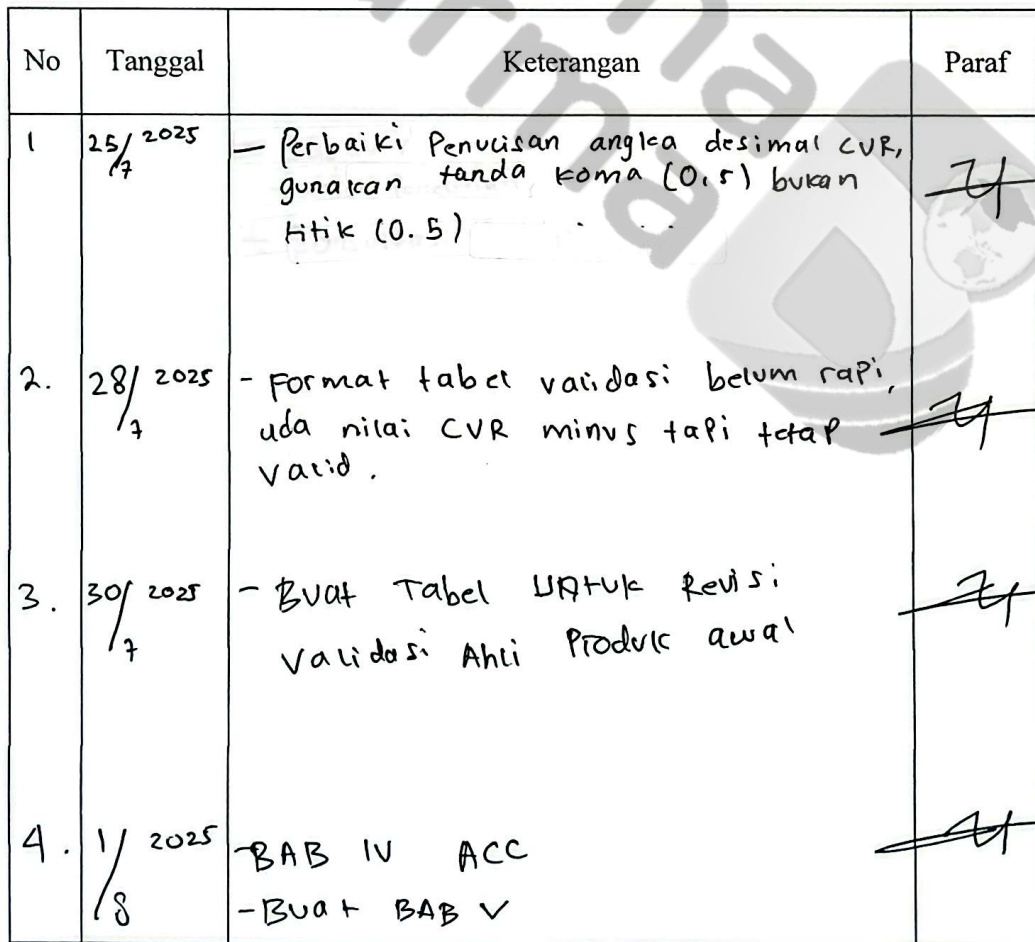 No Tanggal Keterangan Paraf
1 25/7 2025 - Perbaiki Penulisan angka desimal CVR,
gunakan tanda koma (0,5) bukan
titik (0.5)
2. 28/7 2025 - Format tabel validasi belum rapi,
uda nilai CVR minus tapi tetap
valid.
3. 30/7 2025 - Buat Tabel Untuk Revisi
Validasi Ahli Produk awal
4. 1/8 2025 -BAB IV ACC
-Buat BAB V